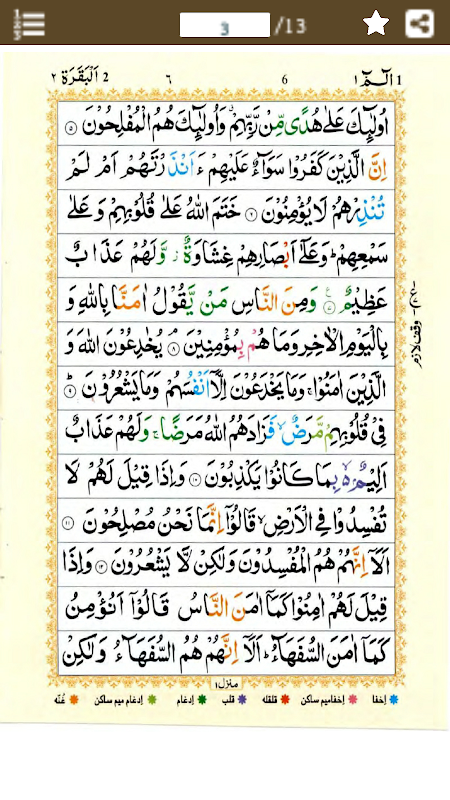 3 /13
2 اَلْبَقَرَة ٢ ٦ 6 الٓمّٓ ١ 1
اُولٰٓئِكَ عَلٰى هُدًى مِّنْ رَّبِّهِمْ ۙ وَاُولٰٓئِكَ هُمُ الْمُفْلِحُوْنَ ۝٥
اِنَّ الَّذِيْنَ كَفَرُوْا سَوَآءٌ عَلَيْهِمْ ءَاَنْذَرْتَهُمْ اَمْ لَمْ
تُنْذِرْهُمْ لَا يُؤْمِنُوْنَ ۝٦ خَتَمَ اللّٰهُ عَلٰى قُلُوْبِهِمْ وَعَلٰى
سَمْعِهِمْ ؕ وَعَلٰٓى اَبْصَارِهِمْ غِشَاوَةٌ ؗ وَّلَهُمْ عَذَابٌ
عَظِيْمٌ ۝٧ وَمِنَ النَّاسِ مَنْ يَّقُوْلُ اٰمَنَّا بِاللّٰهِ وَ
بِالْيَوْمِ الْاٰخِرِ وَمَا هُمْ بِمُؤْمِنِيْنَ ۝٨ يُخٰدِعُوْنَ اللّٰهَ وَ
الَّذِيْنَ اٰمَنُوْا ۚ وَمَا يَخْدَعُوْنَ اِلَّاۤ اَنْفُسَهُمْ وَمَا يَشْعُرُوْنَ ۝٩
فِيْ قُلُوْبِهِمْ مَّرَضٌ ۙ فَزَادَهُمُ اللّٰهُ مَرَضًا ۚ وَلَهُمْ عَذَابٌ
اَلِيْمٌۢ ۙ۬ بِمَا كَانُوْا يَكْذِبُوْنَ ۝١٠ وَاِذَا قِيْلَ لَهُمْ لَا
تُفْسِدُوْا فِي الْاَرْضِ ۙ قَالُوْۤا اِنَّمَا نَحْنُ مُصْلِحُوْنَ ۝١١
اَلَاۤ اِنَّهُمْ هُمُ الْمُفْسِدُوْنَ وَلٰكِنْ لَّا يَشْعُرُوْنَ ۝١٢ وَاِذَا
قِيْلَ لَهُمْ اٰمِنُوْا كَمَاۤ اٰمَنَ النَّاسُ قَالُوْۤا اَنُؤْمِنُ
كَمَاۤ اٰمَنَ السُّفَهَآءُ ؕ اَلَاۤ اِنَّهُمْ هُمُ السُّفَهَآءُ وَلٰكِنْ
وقف لازم
منزل ١
إخفا إخفا ميم ساكن قلقله قلب إدغام إدغام ميم ساكن غُنّه